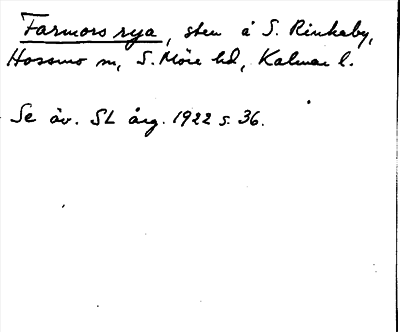 Farmors rya, sten å S. Rinkaby,
Hossmo sn, S. Möre hd, Kalmar l.
Se äv. SL årg. 1922 s. 36.